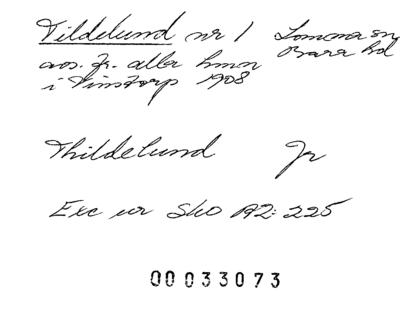 Tildelund nr 1 Lomma sn
Bara hd
avs. fr. alla hmn
i Vinstorp 1908
Thildelund Jr
Exc ur Sko A2: 225
00033073